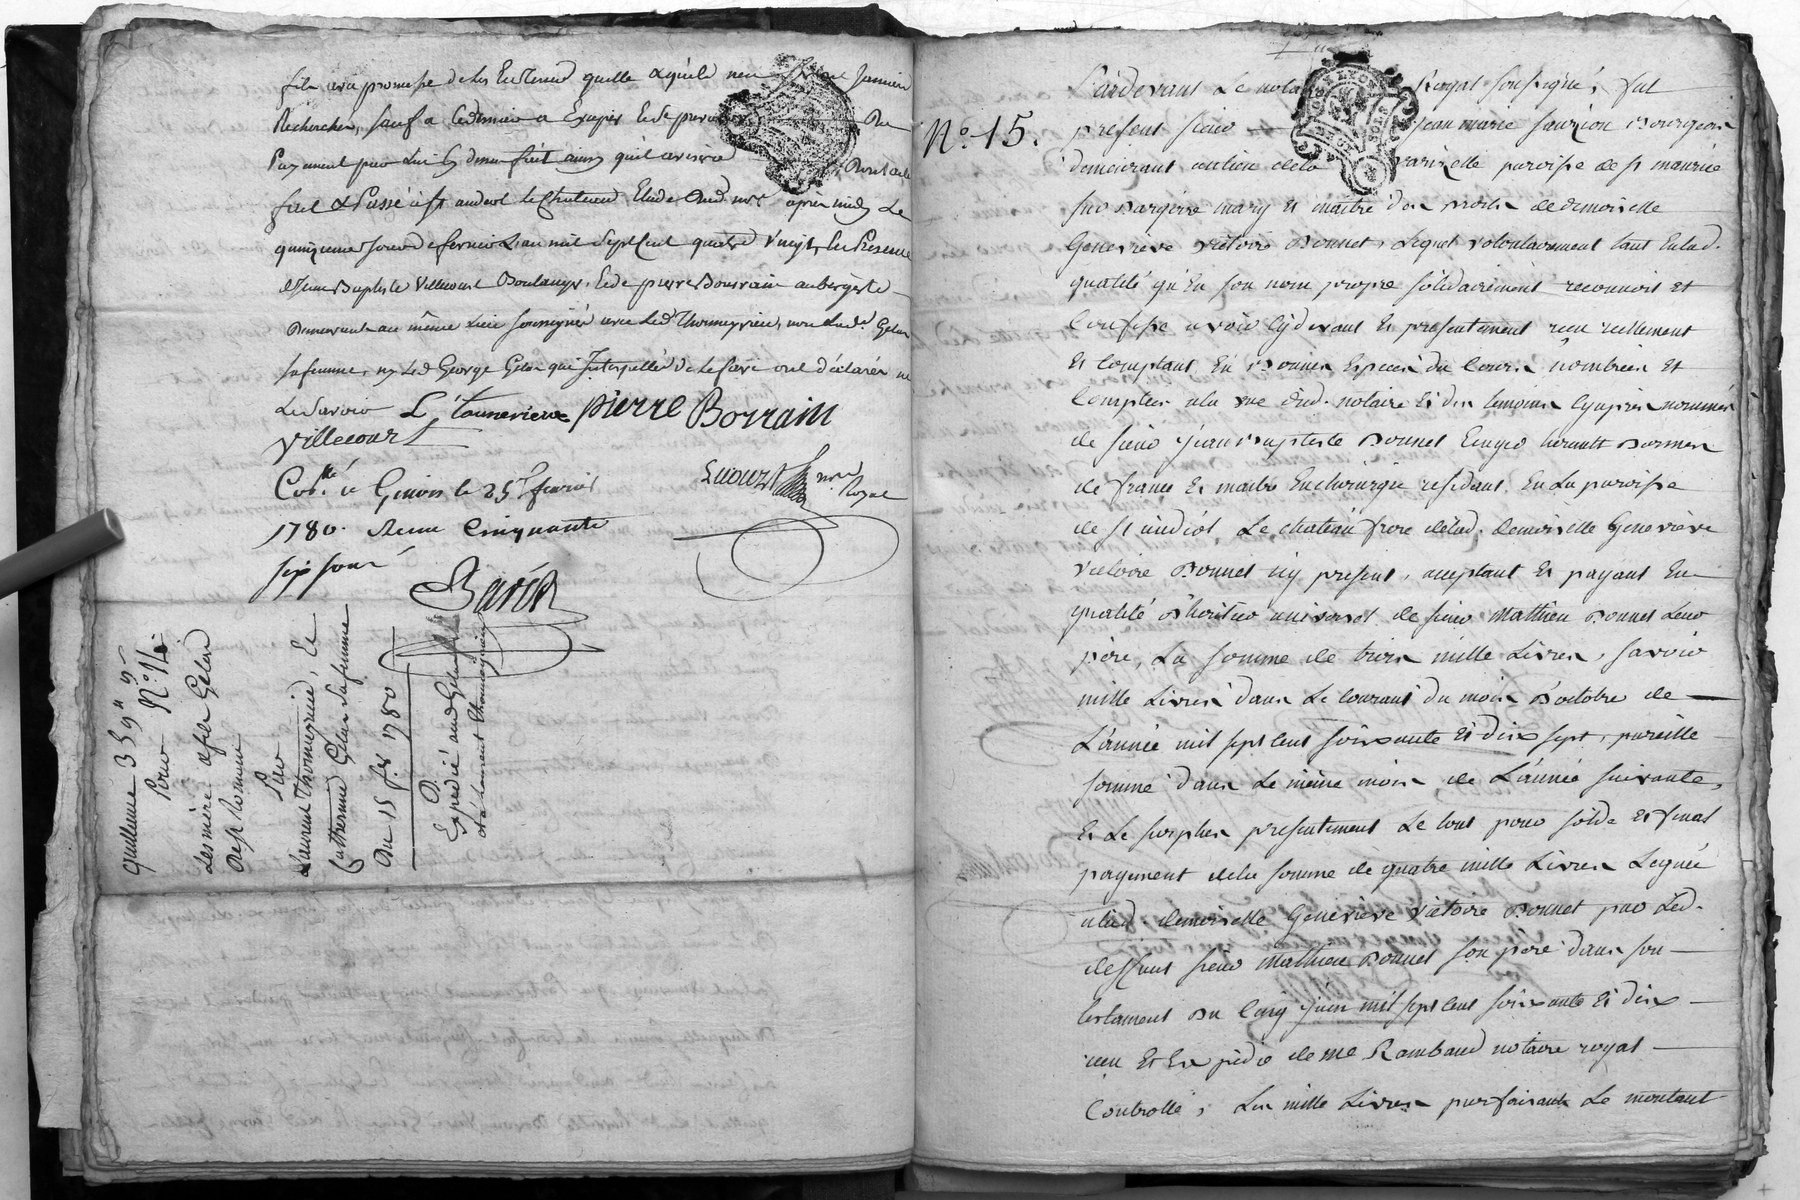 fils avec promesse de les Entretenir quelle & qu'elle ne
Rechercher, sauf a ce dernier a Exiger
payement par lui
fait & Passé a St andeol le Chateau Etude Dud. nre après midy Le
quinzieme jour de fevrier L'an mil Sept Cent quatre vingt, En Presence
de Jean Baptiste Villecourt Boulanger, & de pierre Bourrain aubergiste
Demeurants au même Lieu soussignés avec Led. Thomeyrieu, non Lad. Gelas
sa femme, ny Led. George Gelas qui Interpellés de le faire ont déclarés ne
Le Savoir
pierre Borrain
Villecourt
Cotlé a Givors le 25 fevrier
1780. Reçu Cinquante
six sous
nre Royal
quittance 339
N.° 14
Pour
Les mère & fils Gelas
Pour
Laurent Thomeyrieu, Et
Catherine Gelas sa femme
Du 15 fer 1780
Expédié aud. Gelas
N.° 15.
Pardevant Le notaire Royal soussigné, fut
présent sieur Jean marie Bourgeois
demeurant au lieu dela paroisse de St maurice
sur Dargoire mary Et maitre des droits de demoiselle
Geneviève victoire Bonnet, Lequel volontairement tant Enlad.
qualité qu'En son nom propre solidairement reconnoit Et
Confesse avoir Cydevant Et présentement reçu réellement
Et Comptant En Bonnes Espèces du Cours nombrées Et
Comptées a la vue dud. notaire Et des temoins Cyaprès nommés
de sieur Jean Baptiste Bonnet
de france Et maitre En chirurgie résidant En La paroisse
de St andéol Le chateau frère delad. demoiselle Geneviève
victoire Bonnet icy présent, acceptant Et payant En
qualité D'héritier universel de sieur Mathieu Bonnet Leur
père, La somme de trois mille Livres, savoir
mille Livres dans Le Courant du mois D'octobre de
L'année mil sept cent soixante Et dix sept, pareille
somme dans Le même mois de L'année suivante,
Et Le surplus présentement Le tout pour solde Et final
payement dela somme de quatre mille Livres Leguée
alad. demoiselle Geneviève victoire Bonnet par Led.
deffunt sieur Mathieu Bonnet son père dans son
testament Du Cinq juin mil sept cent soixante Et dix
reçu Et Expédié de Me Rambaud notaire royal
Controllé, Les mille Livres parfaisant Le montant